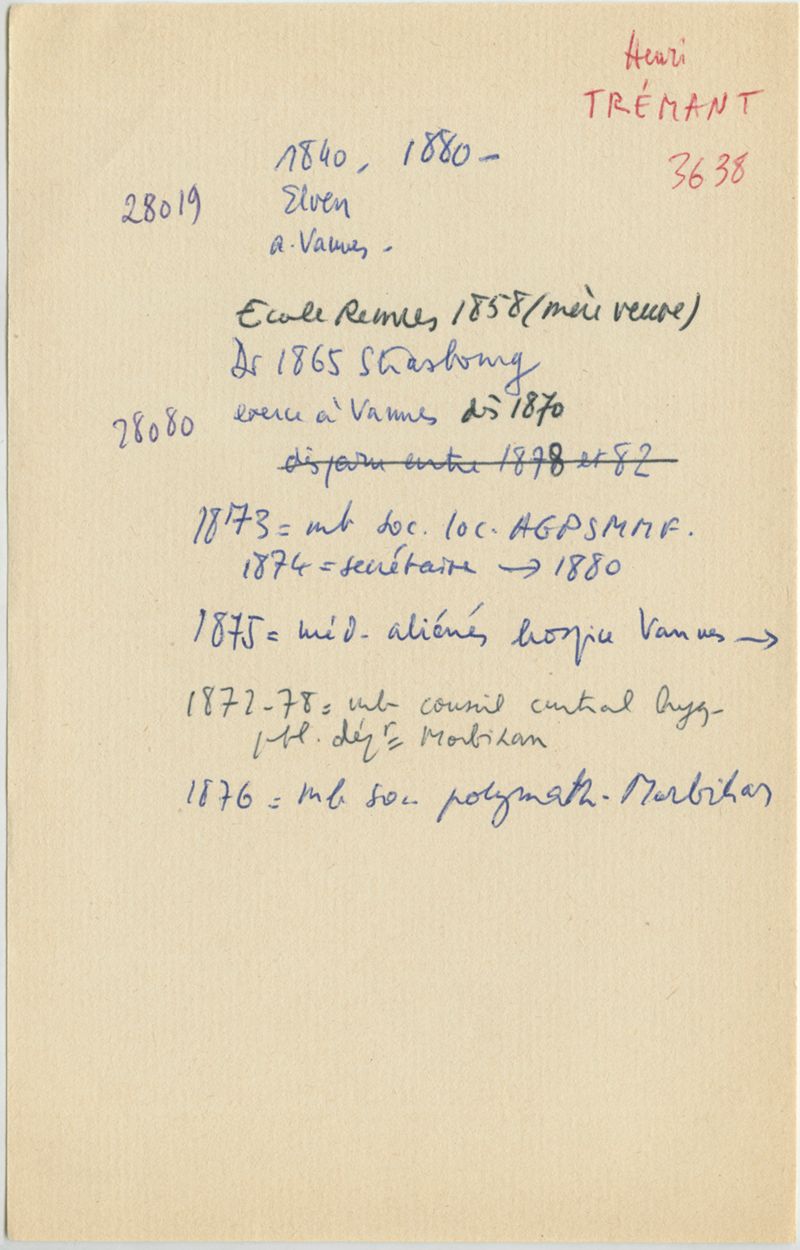 Henri
TRÉMANT
3638
1840, 1880 -
28019 Elven
a. Vannes -
Ecole Rennes 1858 (mère veuve)
Dr 1865 Strasbourg
28080 exerce à Vannes dès 1870
disparu entre 1878 et 82
1873 = mb soc. loc. AGPSMMF.
1874 = secrétaire → 1880
1875 = méd. aliénés hospice Vannes →
1872-78 = mb conseil central hyg-
pbl. dépt = Morbihan
1876 = mb soc. polymath. Morbihan